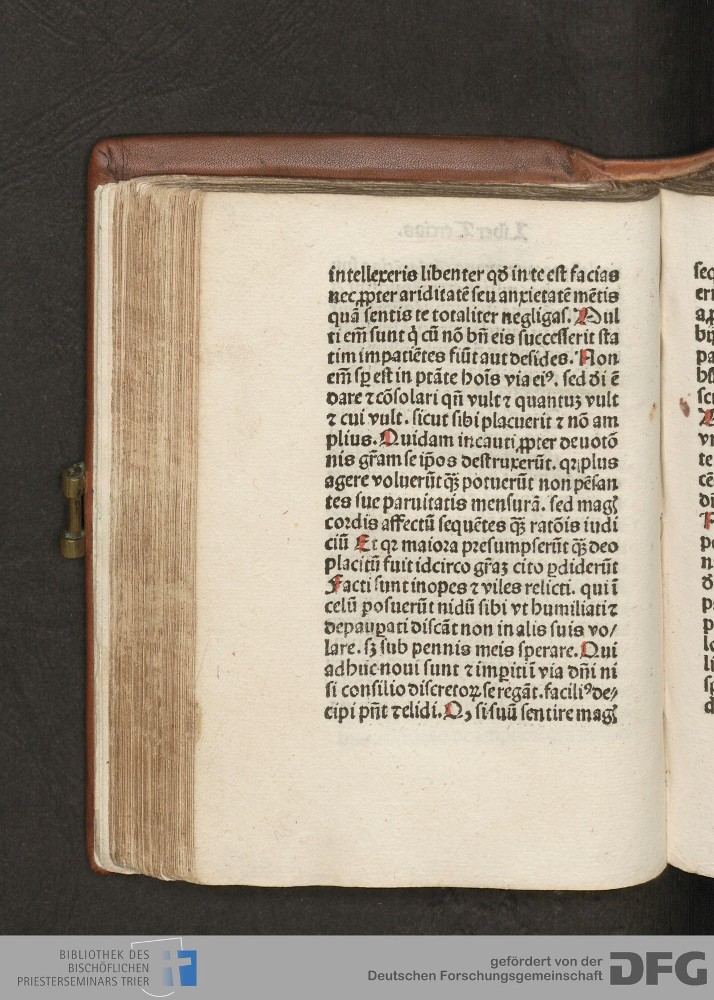 intellexeris libenter qđ in te est facias
nec ꝓpter ariditatē seu anxietatē mētis
quā sentis te totaliter negligas. Mul
ti em̄ sunt q̇ cū nō bn̄ eis successerit sta
tim impatiētes fiūt aut desides. Non
em̄ sꝑ est in ptāte hoīs via eiꝰ. sed đi ē
dare ⁊ cōsolari qn̄ vult ⁊ quantuꝫ vult
⁊ cui vult. sicut sibi placuerit ⁊ nō am
plius. Quidam incauti ꝓpter deuotō
nis gr̄am se ip̄os destruxerūt. qꝛ plus
agere voluerūt qꝫ̄ potuerūt non pēsan
tes sue paruitatis mensurā. sed magꝭ
cordis affectū sequētes qꝫ̄ ratōis iudi
ciū Et qꝛ maiora presumpserūt qꝫ̄ deo
placitū fuit idcirco gr̄aꝫ cito ꝑdiderūt
Facti sunt inopes ⁊ viles relicti. qui ī
celū posuerūt nidū sibi vt humiliati ⁊
depauꝑati discāt non in alis suis vo/
lare. sꝫ sub pennis meis sperare. Qui
adhuc noui sunt ⁊ imꝑiti ī via dn̄i ni
si consilio discretoꝝ se regāt. faciliꝰ de/
cipi pn̄t ⁊ elidi. Qꝫ si suū sentire magꝭ
BIBLIOTHEK DES
BISCHÖFLICHEN
PRIESTERSEMINARS TRIER
gefördert von der
Deutschen Forschungsgemeinschaft DFG